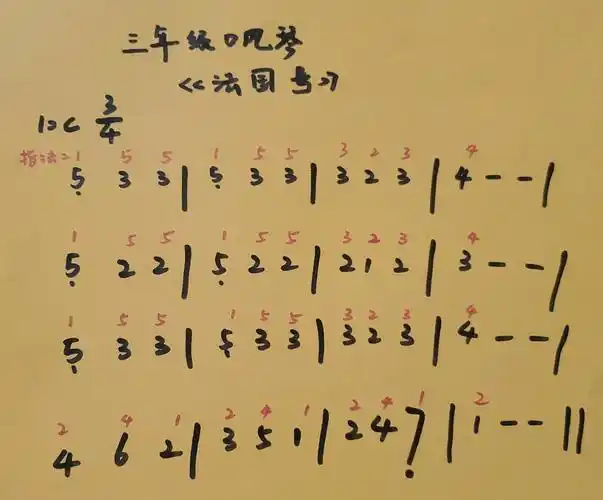 三年级口风琴
《法国号》
1=C 3/4
指法:1 5 5 1 5 5 3 2 3 4
5̣ 3 3 | 5̣ 3 3 | 3 2 3 | 4 - - |
1 5 5 1 5 5 3 2 3 4
5̣ 2 2 | 5̣ 2 2 | 2 1 2 | 3 - - |
1 5 5 1 5 5 3 2 3 4
5̣ 3 3 | 5̣ 3 3 | 3 2 3 | 4 - - |
2 4 1 2 4 1 2 4 1 2
4 6 2 | 3 5 1 | 2 4 7̣ | 1 - - ||